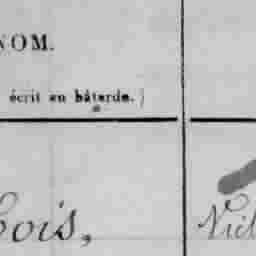 NOM.
écrit en bâtarde.)
bois,